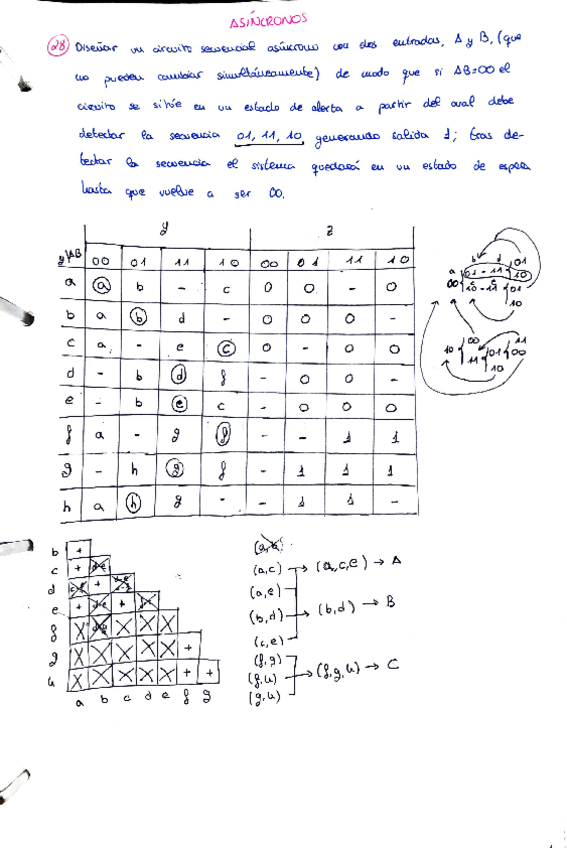 ASÍNCRONOS
28 Diseñar un circuito secuencial asíncrono con dos entradas, A y B, (que
no pueden cambiar simultáneamente) de modo que si AB=00 el
circuito se sitúe en un estado de alerta a partir del cual debe
detectar la secuencia 01, 11, 10 generando salida 1; tras de-
tectar la secuencia el sistema quedará en un estado de espera
hasta que vuelve a ser 00.
y z
y\AB 00 01 11 10 00 01 11 10
a a b - c 0 0 - 0
b a b d - 0 0 0 -
c a - e c 0 - 0 0
d - b d f - 0 0 -
e - b e c - 0 0 0
f a - g f - - 1 1
g - h g f - 1 1 1
h a h g - - 1 1 -
b +
c +
d +
e + +
f X X X X
g X X X X X +
h X X X X X + +
a b c d e f g
(a,b)
(a,c) → (a,c,e) → A
(a,e)
(b,d) → (b,d) → B
(c,e)
(f,g)
(f,h) → (f,g,h) → C
(g,h)